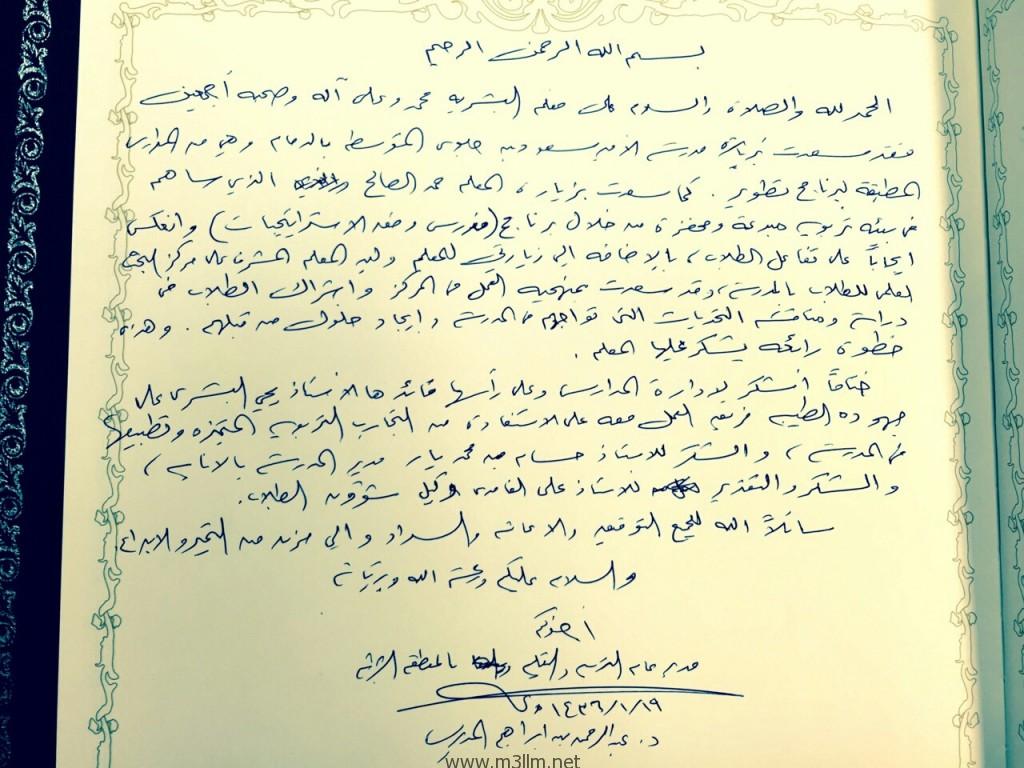 بسم الله الرحمن الرحيم
الحمد لله والصلاة والسلام على معلم البشريه محمد وعلى آله وصحبه أجمعين
فقد سعدت بزيارة مدرسة الأمير سعود بن جلوي المتوسطة بالدمام وهي من المدارس
المطبقة لبرنامج تطوير . كما سعدت بزيارة المعلم حمد الصالح الذي ساهم
في بيئه تربويه مبدعة ومحفزة من خلال برنامج ( وصفه الاستراتيجيات ) وانعكس
ايجاباً على تفاعل الطلاب ، بالإضافه الى زيارتي للمعلم وليد المعلم المشرف على مركز البحث
العلمي للطلاب بالمدرسة ، وقد سعدت بمنهجيه العمل في المركز واشراك الطلاب في
دراسة ومناقشة التحديات التي تواجههم في المدرسة وايجاد حلول من قبلهم . وهذه
خطوة رائعه يشكر عليها المعلم .
ختاماً أشكر لإدارة المدارس وعلى رأسها قائدها الاستاذ يحي البشري على
جهوده الطيبه فريقه العمل معه على الاستفادة من التجارب التربويه المتميزه وتطبيقها
في المدرسة ، والشكر للاستاذ حسام بن محمد يار مدير المدرسة بالانابه ،
والشكر والتقدير للاستاذ على الغامدي وكيل شؤون الطلاب .
سائلاً الله للجميع التوفيق والاعانه والسداد والى مزيد من التميز والابداع
والسلام عليكم ورحمة الله وبركاته
أخوكم
مدير عام التربيه والتعليم بالمنطقه الشرقيه
١٤٣٦/١/١٩
د. عبدالرحمن بن ابراهيم المديرس
www.m3llm.net